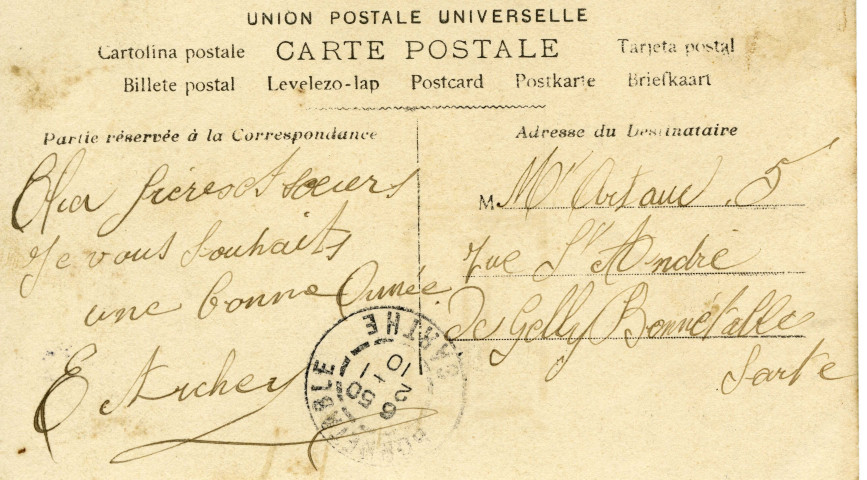 UNION POSTALE UNIVERSELLE
Cartolina postale CARTE POSTALE Tarjeta postal
Billete postal Levelezo-lap Postcard Postkarte Briefkaart
Partie réservée à la Correspondance
Cher frères et soeurs
Je vous souhaits
une bonne Année
E Archey
Adresse du Destinataire
M Mr Artaud, 5
rue St André
de Gelly Bonnétable
Sarte
BONNETABLE SARTHE
6 50
2 - 1
10